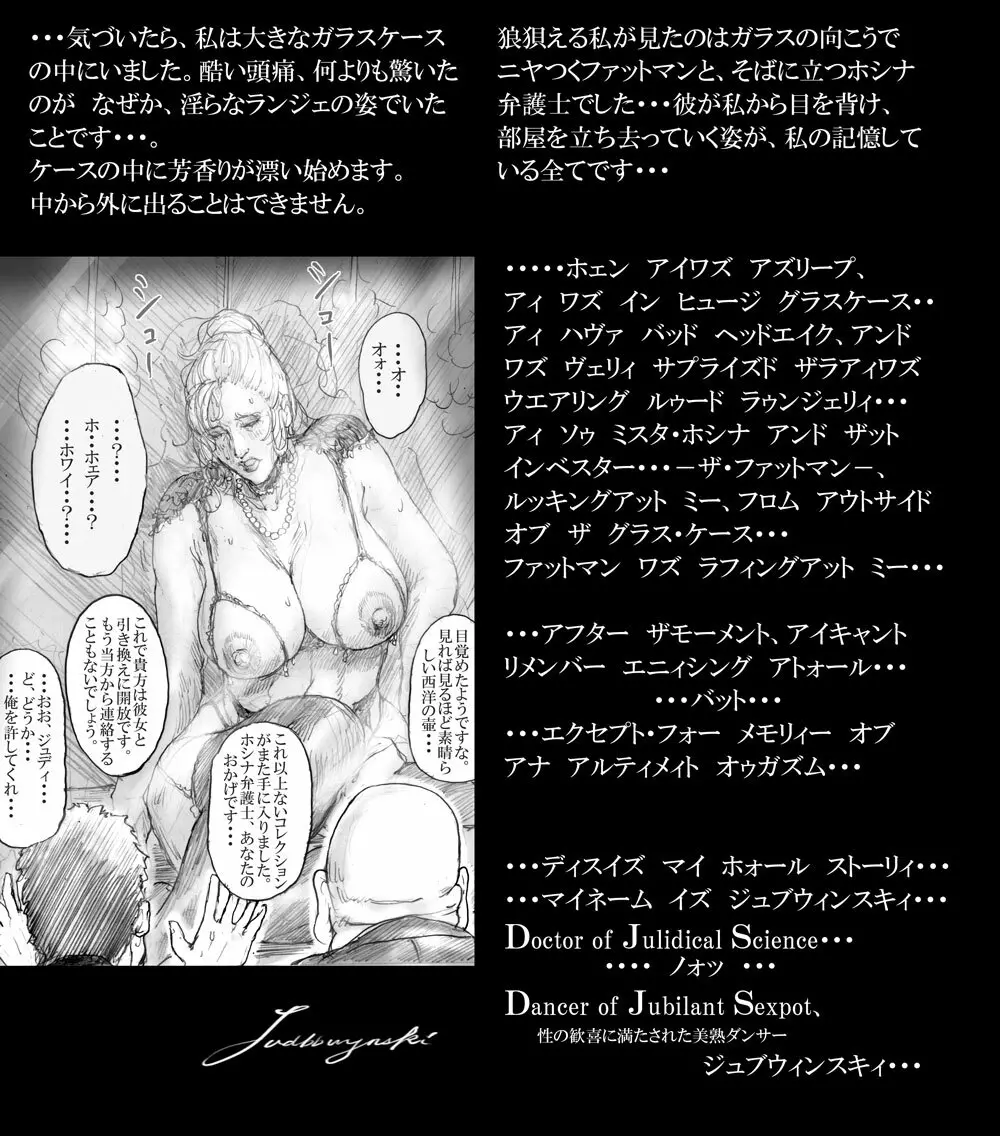 ・・・気づいたら、私は大きなガラスケース
の中にいました。酷い頭痛、何よりも驚いた
のが なぜか、淫らなランジェの姿でいた
ことです・・・。
ケースの中に芳香りが漂い始めます。
中から外に出ることはできません。
狼狽える私が見たのはガラスの向こうで
ニヤつくファットマンと、そばに立つホシナ
弁護士でした・・・彼が私から目を背け、
部屋を立ち去っていく姿が、私の記憶して
いる全てです・・・
シュー
シュー
・・・オ・・
オォ・・・
・・・?・・・
ホ・・ホェア・・・?
・・・ホワイ・・?・・・
目覚めたようですな。
見れば見るほど素晴ら
しい西洋の壷・・・
これ以上ないコレクション
がまた手に入りました。
ホシナ弁護士、あなたの
おかげです・・・
これで貴方は彼女と
引き換えに開放です。
もう当方から連絡する
こともないでしょう。
・・・おお、ジュディ・・・
ど、どうか・・・
・・・俺を許してくれ・・・
・・・・・ホェン アイワズ アズリープ、
アィ ワズ イン ヒュージ グラスケース・・
アィ ハヴァ バッド ヘッドエイク、アンド
ワズ ヴェリィ サプライズド ザラアィワズ
ウエアリング ルゥード ラゥンジェリィ・・・
アィ ソゥ ミスタ・ホシナ アンド ザット
インベスター・・・－ザ・ファットマン－、
ルッキングアット ミー、フロム アウトサイド
オブ ザ グラス・ケース・・・
ファットマン ワズ ラフィングアット ミー・・・
・・・アフター ザモーメント、アイキャント
リメンバー エニィシング アトォール・・・
・・・バット・・・
・・・エクセプト・フォー メモリィー オブ
アナ アルティメイト オゥガズム・・・
・・・ディスイズ マイ ホォール ストーリィ・・・
・・・マイネーム イズ ジュブウィンスキィ・・・
Doctor of Julidical Science・・・
・・・・ ノォッ ・・・
Dancer of Jubilant Sexpot、
性の歓喜に満たされた美熟ダンサー
ジュブウィンスキィ・・・